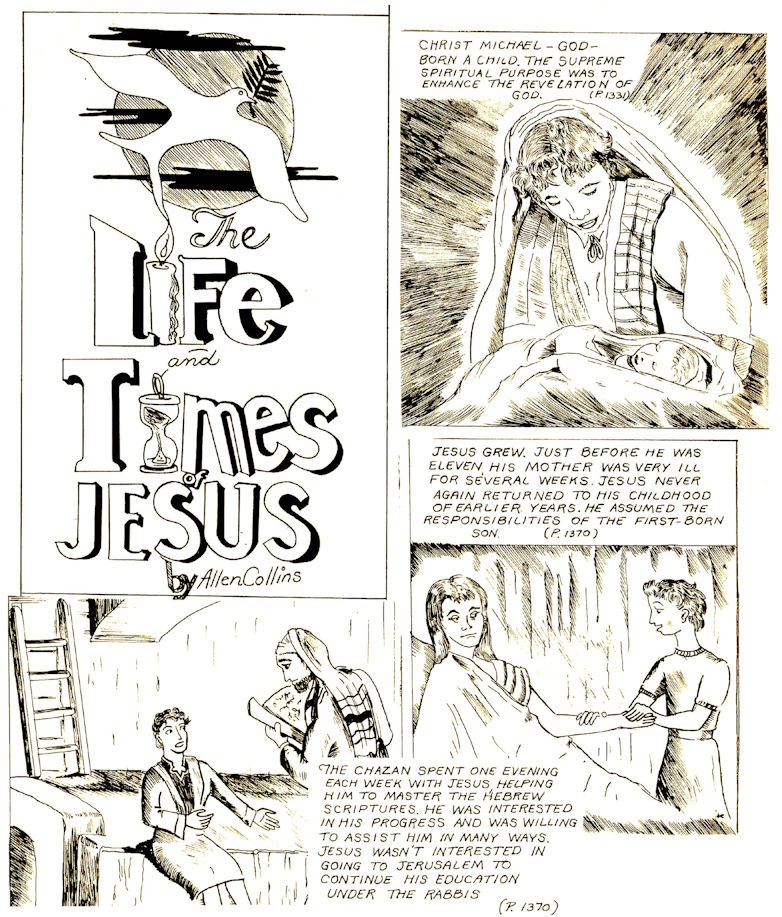 The
Life
and
Times
of
JESUS
by Allen Collins
CHRIST MICHAEL - GOD -
BORN A CHILD. THE SUPREME
SPIRITUAL PURPOSE WAS TO
ENHANCE THE REVELATION OF
GOD. (P. 1331)
JESUS GREW. JUST BEFORE HE WAS
ELEVEN, HIS MOTHER WAS VERY ILL
FOR SEVERAL WEEKS. JESUS NEVER
AGAIN RETURNED TO HIS CHILDHOOD
OF EARLIER YEARS. HE ASSUMED THE
RESPONSIBILITIES OF THE FIRST-BORN
SON. (P. 1370)
THE CHAZAN SPENT ONE EVENING
EACH WEEK WITH JESUS HELPING
HIM TO MASTER THE HEBREW
SCRIPTURES. HE WAS INTERESTED
IN HIS PROGRESS AND WAS WILLING
TO ASSIST HIM IN MANY WAYS.
JESUS WASN'T INTERESTED IN
GOING TO JERUSALEM TO
CONTINUE HIS EDUCATION
UNDER THE RABBIS
(P. 1370)